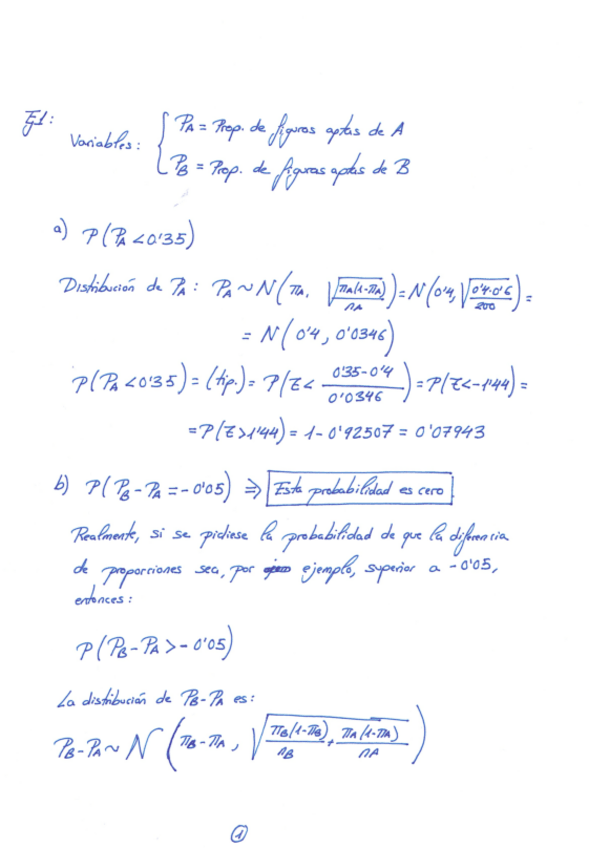 Ej1:
Variables: { PA = Prop. de figuras aptas de A
PB = Prop. de figuras aptas de B
a) P(PA < 0'35)
Distribución de PA: PA ~ N(πA, √(πA(1-πA)/nA)) = N(0'4, √(0'4·0'6/200)) =
= N(0'4, 0'0346)
P(PA < 0'35) = (tip.) = P(Z < (0'35-0'4)/0'0346) = P(Z < -1'44) =
= P(Z > 1'44) = 1 - 0'92507 = 0'07943
b) P(PB - PA = -0'05) ⇒ Esta probabilidad es cero
Realmente, si se pidiese la probabilidad de que la diferencia
de proporciones sea, por ejemplo, superior a -0'05,
entonces:
P(PB - PA > -0'05)
La distribución de PB-PA es:
PB-PA ~ N(πB - πA, √(πB(1-πB)/nB + πA(1-πA)/nA))
1